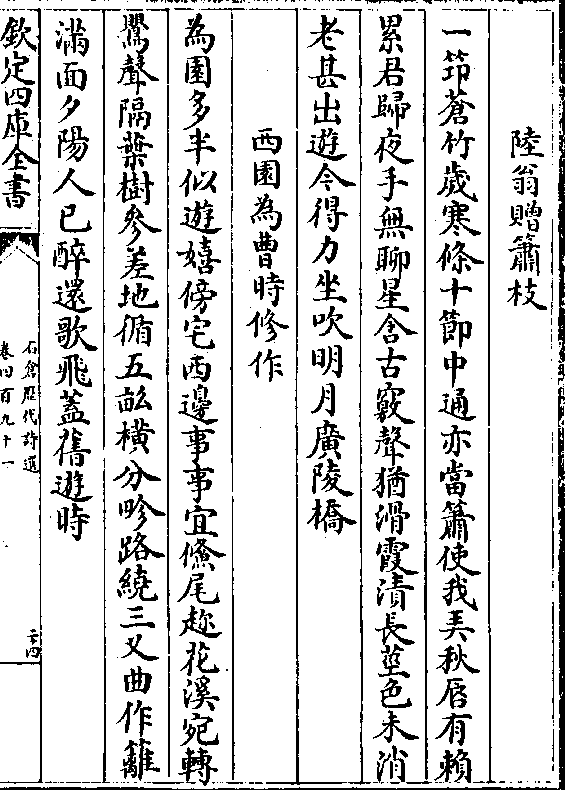 陸翁贈簫枝
一笻蒼竹歲寒條十節中通亦當簫使我異秋唇有賴
累君歸夜手無聊星含古竅聲猶滑霞漬長莖色未消
老甚出遊今得力坐吹明月廣陵橋
西園為曹時修作
為園多半似遊嬉傍宅西邊事事宜魚尾趂花溪宛轉
鸎聲隔葉樹參差地循五畝橫分畛路繞三叉曲作籬
滿面夕陽人已醉還歌飛蓋舊遊時
欽定四庫全書
石倉歷代詩選
卷四百九十一
二十四